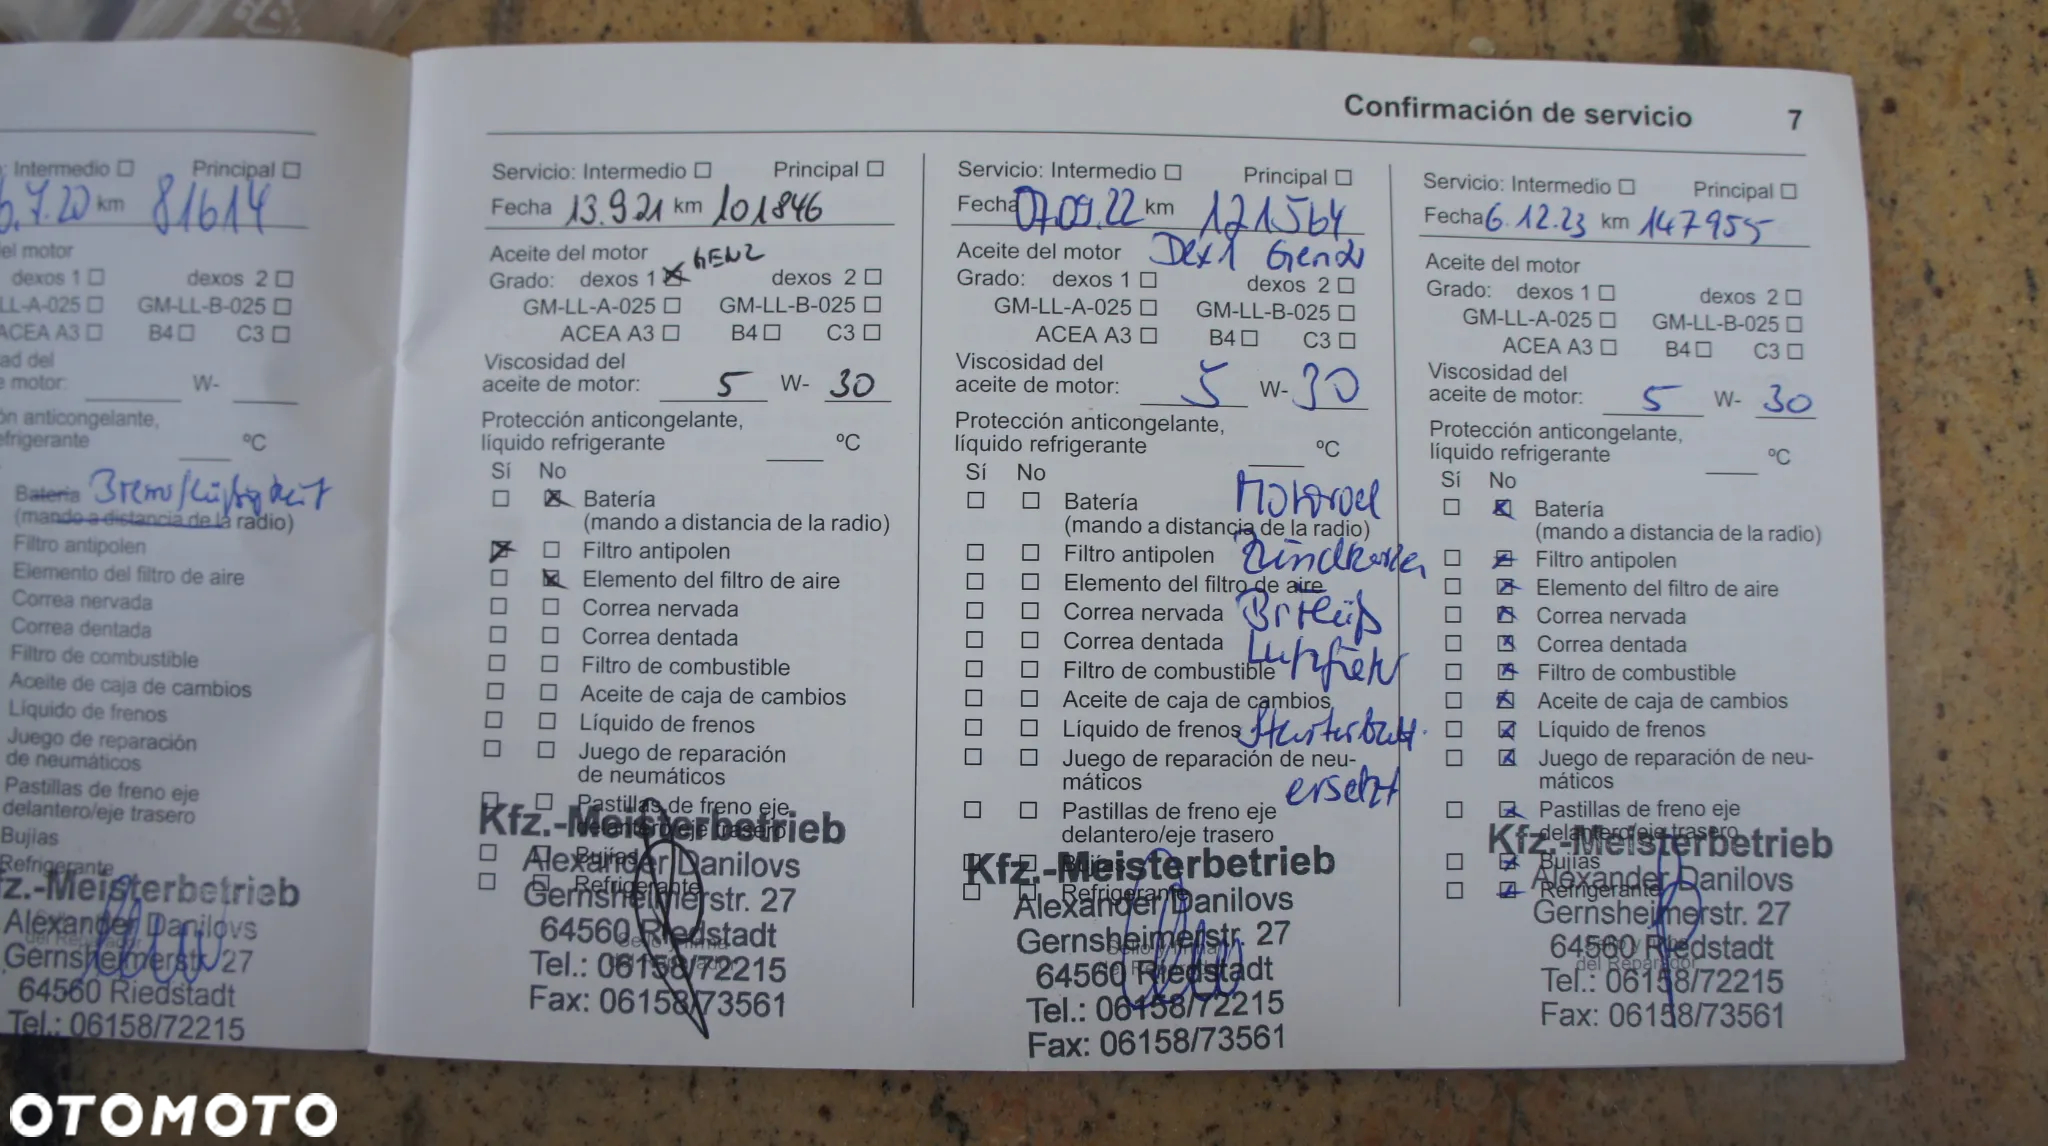 Confirmación de servicio 7
: Intermedio ☐ Principal ☐
6.7.20 km 81614
el motor
dexos 1 ☐ dexos 2 ☐
LL-A-025 ☐ GM-LL-B-025 ☐
ACEA A3 ☐ B4 ☐ C3 ☐
ad del
e motor: W-
ón anticongelante,
efrigerante ºC
Batería Bremsflüßigkeit
(mando a distancia de la radio)
Filtro antipolen
Elemento del filtro de aire
Correa nervada
Correa dentada
Filtro de combustible
Aceite de caja de cambios
Líquido de frenos
Juego de reparación
de neumáticos
Pastillas de freno eje
delantero/eje trasero
Bujías
Refrigerante
fz.-Meisterbetrieb
Alexander Danilovs
Gernsheimerstr. 27
64560 Riedstadt
Tel.: 06158/72215
Servicio: Intermedio ☐ Principal ☐
Fecha 13.9.21 km 101846
Aceite del motor GEN2
Grado: dexos 1 ☒ dexos 2 ☐
GM-LL-A-025 ☐ GM-LL-B-025 ☐
ACEA A3 ☐ B4 ☐ C3 ☐
Viscosidad del
aceite de motor: 5 W- 30
Protección anticongelante,
líquido refrigerante ºC
Sí No
☐ ☒ Batería
(mando a distancia de la radio)
☒ ☐ Filtro antipolen
☐ ☒ Elemento del filtro de aire
☐ ☐ Correa nervada
☐ ☐ Correa dentada
☐ ☐ Filtro de combustible
☐ ☐ Aceite de caja de cambios
☐ ☐ Líquido de frenos
☐ ☐ Juego de reparación
de neumáticos
☐ ☐ Pastillas de freno eje
delantero/eje trasero
☐ ☐ Bujías
☐ ☐ Refrigerante
Sello y firma
del Reparador
Kfz.-Meisterbetrieb
Alexander Danilovs
Gernsheimerstr. 27
64560 Riedstadt
Tel.: 06158/72215
Fax: 06158/73561
Servicio: Intermedio ☐ Principal ☐
Fecha 07.09.22 km 121564
Aceite del motor Dex1 Gen2
Grado: dexos 1 ☐ dexos 2 ☐
GM-LL-A-025 ☐ GM-LL-B-025 ☐
ACEA A3 ☐ B4 ☐ C3 ☐
Viscosidad del
aceite de motor: 5 W- 30
Protección anticongelante,
líquido refrigerante ºC
Sí No
☐ ☐ Batería Motoroel
(mando a distancia de la radio)
☐ ☐ Filtro antipolen Zündkerzen
☐ ☐ Elemento del filtro de aire
☐ ☐ Correa nervada
☐ ☐ Correa dentada Luftfilter
☐ ☐ Filtro de combustible
☐ ☐ Aceite de caja de cambios
☐ ☐ Líquido de frenos Starterbatt.
☐ ☐ Juego de reparación de neu-
máticos ersetzt
☐ ☐ Pastillas de freno eje
delantero/eje trasero
☐ ☐ Bujías
☐ ☐ Refrigerante
Sello y firma
del Reparador
Kfz.-Meisterbetrieb
Alexander Danilovs
Gernsheimerstr. 27
64560 Riedstadt
Tel.: 06158/72215
Fax: 06158/73561
Servicio: Intermedio ☐ Principal ☐
Fecha 6.12.23 km 147955
Aceite del motor
Grado: dexos 1 ☐ dexos 2 ☐
GM-LL-A-025 ☐ GM-LL-B-025 ☐
ACEA A3 ☐ B4 ☐ C3 ☐
Viscosidad del
aceite de motor: 5 W- 30
Protección anticongelante,
líquido refrigerante ºC
Sí No
☐ ☒ Batería
(mando a distancia de la radio)
☐ ☒ Filtro antipolen
☐ ☒ Elemento del filtro de aire
☐ ☒ Correa nervada
☐ ☒ Correa dentada
☐ ☒ Filtro de combustible
☐ ☒ Aceite de caja de cambios
☐ ☒ Líquido de frenos
☐ ☒ Juego de reparación de neu-
máticos
☐ ☒ Pastillas de freno eje
delantero/eje trasero
☐ ☒ Bujías
☐ ☒ Refrigerante
Sello y firma
del Reparador
Kfz.-Meisterbetrieb
Alexander Danilovs
Gernsheimerstr. 27
64560 Riedstadt
Tel.: 06158/72215
Fax: 06158/73561
OTOMOTO